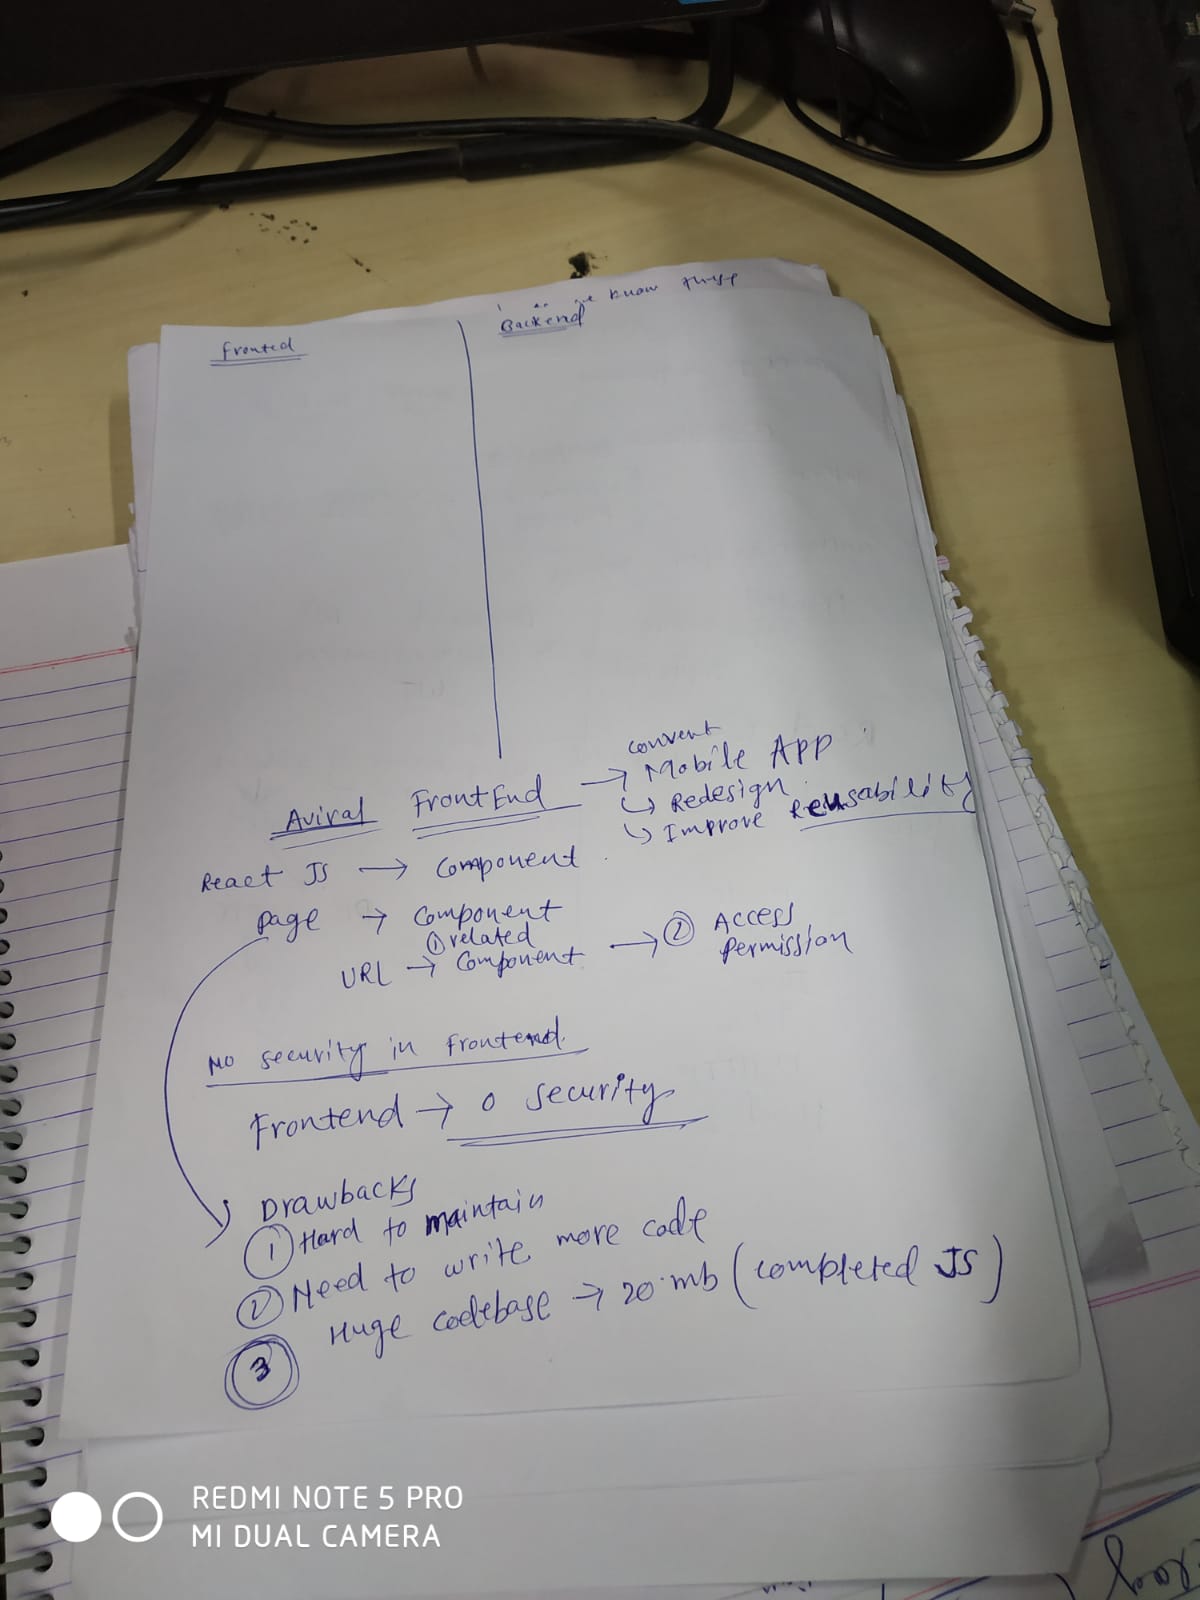 we know these
Fronted
Backend
convert
Aviral FrontEnd → Mobile App
↳ Redesign
↳ Improve Reusability
React JS → Component
Page → Component
① related
URL → Component → ② Access
Permission
No security in Frontend.
Frontend → 0 security
Drawbacks
① Hard to maintain
② Need to write more code
③ Huge codebase → 20 mb (completed JS)
REDMI NOTE 5 PRO
MI DUAL CAMERA